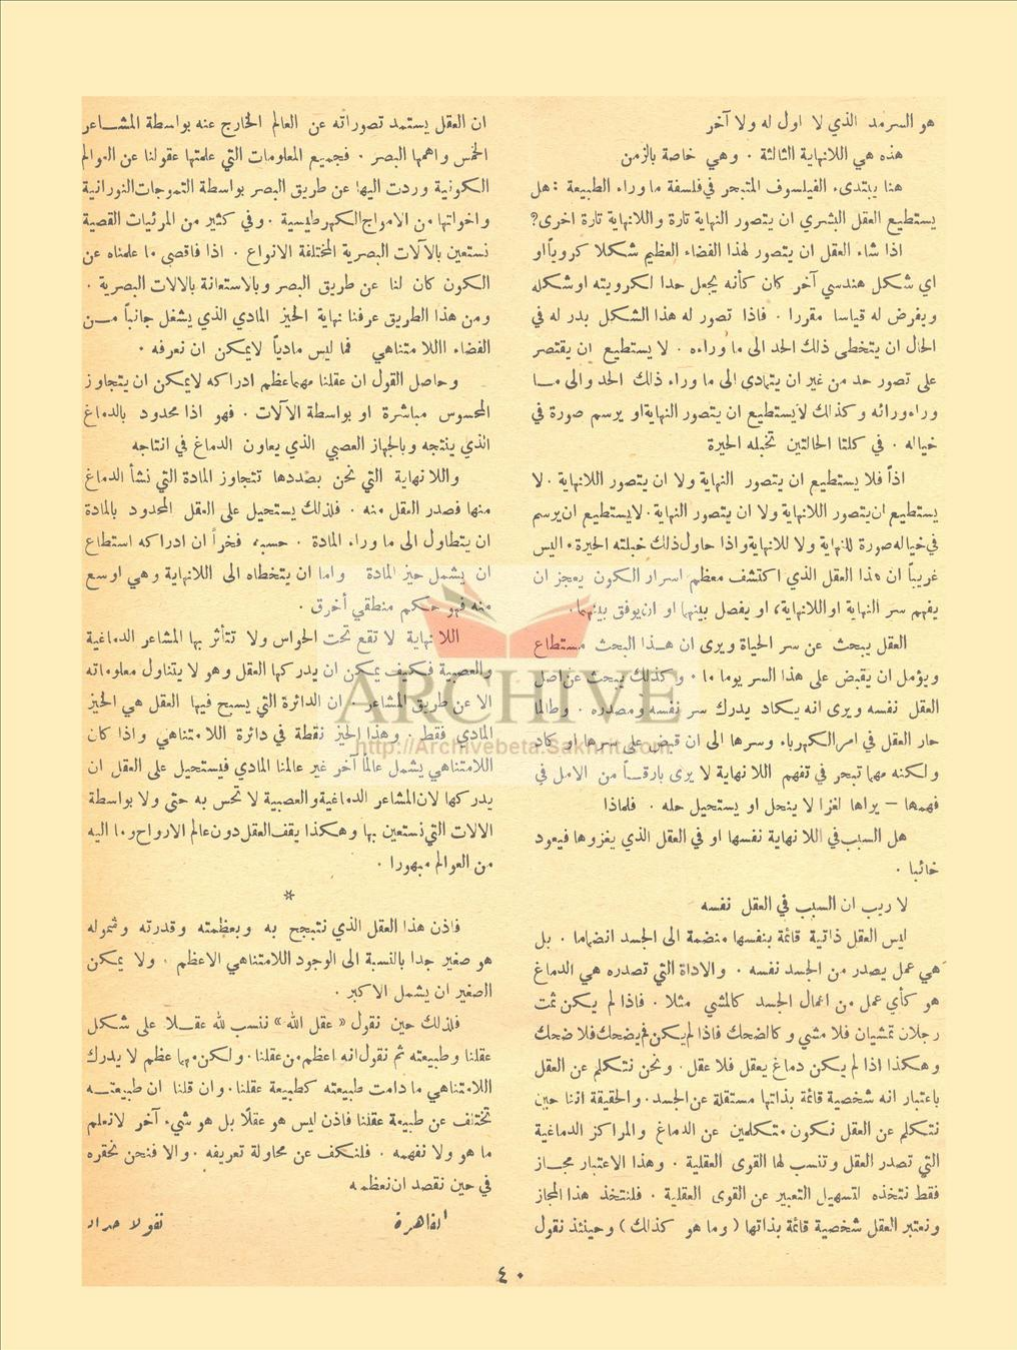 هو السرمد الذي لا اول له ولا آخر
هذه هي اللانهاية الثالثة . وهي خاصة بالزمن
هنا يبتدىء الفيلسوف المتبحر في فلسفة ما وراء الطبيعة : هل
يستطيع العقل البشري ان يتصور النهاية تارة واللانهاية تارة اخرى ؟
اذا شاء العقل ان يتصور لهذا الفضاء العظيم شكلا كروياً او
اي شكل هندسي آخر كان كأنه يجعل حدا لكرويته او شكله
ويفرض له قياسا مقررا . فاذا تصور له هذا الشكل بدر له في
الحال ان يتخطى ذلك الحد الى ما وراءه . لا يستطيع ان يقتصر
على تصور حد من غير ان يتمادى الى ما وراء ذلك الحد والى مـا
وراء ورائه وكذلك لا يستطيع ان يتصور النهاية او يرسم صورة في
خياله . في كلتا الحالتين تخبله الحيرة
اذاً فلا يستطيع ان يتصور النهاية ولا ان يتصور اللانهاية . لا
يستطيع ان يتصور اللانهاية ولا ان يتصور النهاية . لا يستطيع ان يرسم
في خياله صورة للنهاية ولا للانهاية واذا حاول ذلك خبلته الحيرة . اليس
غريباً ان هذا العقل الذي اكتشف معظم اسرار الكون يعجز ان
يفهم سر النهاية او اللانهاية ، او يفصل بينها او ان يوفق بينهما .
العقل يبحث عن سر الحياة ويرى ان هـذا البحث مستطاع
ويؤمل ان يقبض على هذا السر يوما ما . وكذلك يبحث عن اصل
العقل نفسه ويرى انه يكاد يدرك سر نفسه ومصدره . وطالما
حار العقل في امر الكهرباء وسرها الى ان قبض على سرها او كاد
ولكنه مهما تبحر في تفهم اللانهاية لا يرى بارقـاً من الامل في
فهمها – يراها لغزا لا ينحل او يستحيل حله . فلماذا
هل السبب في اللانهاية نفسها او في العقل الذي يغزوها فيعود
خائبا .
لا ريب ان السبب في العقل نفسه
ليس العقل ذاتية قائمة بنفسها منضمة الى الجسد انضماما . بل
هي عمل يصدر من الجسد نفسه . والاداة التي تصدره هي الدماغ
هو كأي عمل من اعمال الجسد كالمشي مثلا . فاذا لم يكن ثمت
رجلان تمشيان فلا مشي وكالضحك فاذا لم يكن فم يضحك فلا ضحك
وهكذا اذا لم يكن دماغ يعقل فلا عقل . ونحن نتكلم عن العقل
باعتبار انه شخصية قائمة بذاتها مستقلة عن الجسد . والحقيقة اننا حين
نتكلم عن العقل نكون متكلمين عن الدماغ والمراكز الدماغية
التي تصدر العقل وتنسب لها القوى العقلية . وهذا الاعتبار مجـاز
فقط نتخذه لتسهيل التعبير عن القوى العقلية . فلنتخذ هذا المجاز
ونعتبر العقل شخصية قائمة بذاتها ( وما هو كذلك ) وحينئذ نقول
ان العقل يستمد تصوراته عن العالم الخارج عنه بواسطة المشـاعر
الخمس واهمها البصر . فجميع المعلومات التي علمتها عقولنا عن العوالم
الكونية وردت اليها عن طريق البصر بواسطة التموجات النورانية
واخواتها من الامواج الكهرطيسية . وفي كثير من المرئيات القصية
نستعين بالآلات البصرية المختلفة الانواع . اذا فاقصى ما علمناه عن
الكون كان لنا عن طريق البصر وبالاستعانة بالالات البصرية .
ومن هذا الطريق عرفنا نهاية الحيز المادي الذي يشغل جانباً مـن
الفضاء االلا متناهي فما ليس مادياً لا يمكن ان نعرفه .
وحاصل القول ان عقلنا مهما عظم ادراكه لا يمكن ان يتجاوز
المحسوس مباشرة او بواسطة الآلات . فهو اذا محدود بالدماغ
الذي ينتجه وبالجهاز العصبي الذي يعاون الدماغ في انتاجه
واللانهاية التي نحن بصددها تتجاوز المادة التي نشأ الدماغ
منها فصدر العقل منه . فلذلك يستحيل على العقل المحدود بالمادة
ان يتطاول الى ما وراء المادة . حسبه فخراً ان ادراكه استطاع
ان يشمل حيز المادة واما ان يتخطاه الى اللانهاية وهي اوسع
منه فهو حكم منطقي أخرق .
اللانهاية لا تقع تحت الحواس ولا تتأثر بها المشاعر الدماغية
والعصبية فكيف يمكن ان يدركها العقل وهو لا يتناول معلوماته
الا عن طريق المشاعر . ان الدائرة التي يسبح فيها العقل هي الحيز
المادي فقط . وهذا الحيز نقطة في دائرة اللامتناهي واذا كان
اللامتناهي يشمل عالماً آخر غير عالمنا المادي فيستحيل على العقل ان
يدركها لان المشاعر الدماغية والعصبية لا تحس به حتى ولا بواسطة
الالات التي نستعين بها وهكذا يقف العقل دون عالم الارواح وما اليه
من العوالم مبهورا .
*
فاذن هذا العقل الذي نتبجح به وبعظمته وقدرته وشموله
هو صغير جدا بالنسبة الى الوجود اللامتناهي الاعظم . ولا يمكن
الصغير ان يشمل الاكبر .
فلذلك حين نقول « عقل الله » ننسب لله عقـلا على شكل
عقلنا وطبيعته ثم نقول انه اعظم من عقلنا . ولكن مهما عظم لا يدرك
اللامتناهي ما دامت طبيعته كطبيعة عقلنا . وان قلنا ان طبيعتـه
تختلف عن طبيعة عقلنا فاذن ليس هو عقلاً بل هو شيء آخر لا نعلم
ما هو ولا نفهمه . فلنكف عن محاولة تعريفه . والا فنحن نحقره
في حين نقصد ان نعظمه
القاهرة نقولا حداد
٤٠
ARCHIVE
http://Archivebeta.Sakhrit.com